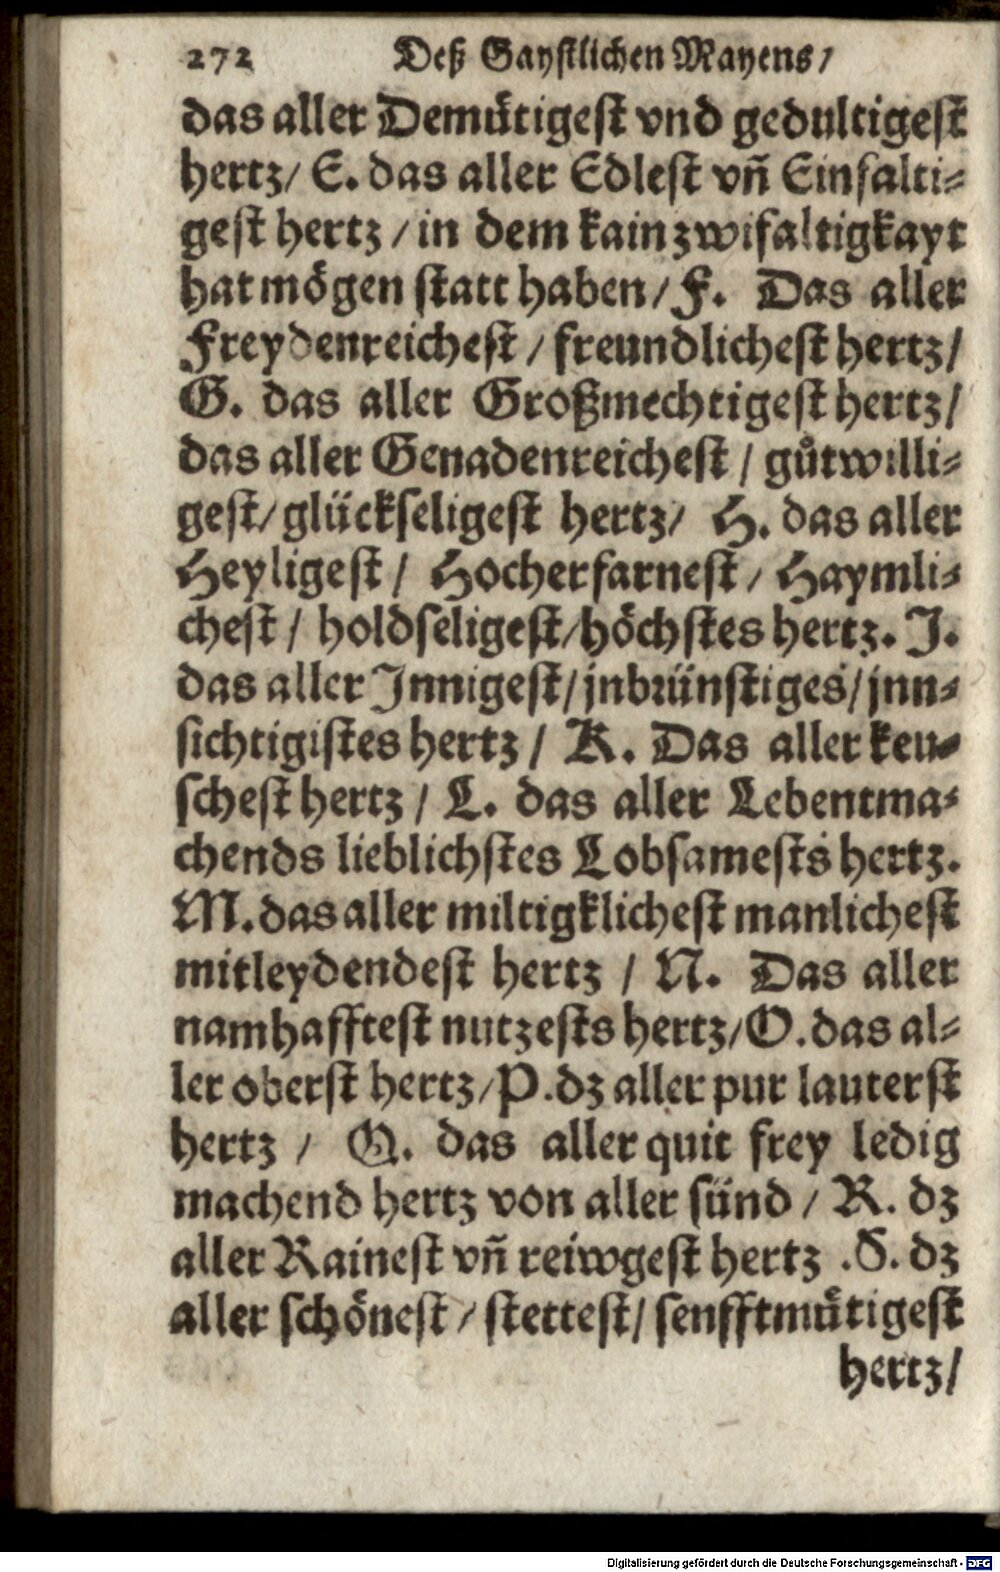 272 Deß Gaystlichen Mayens/
das aller Demuͤtigest vnd gedultigest
hertz/ E. das aller Edlest vñ Einfalti-
gest hertz / in dem kain zwifaltigkayt
hat moͤgen statt haben / F. Das aller
Freydenreichest / freundlichest hertz/
G. das aller Großmechtigest hertz/
das aller Genadenreichest / guͦtwilli-
gest/ glückseligest hertz/ H. das aller
Heyligest / Hocherfarnest / Haymli-
chest / holdseligest/ hoͤchstes hertz. J.
das aller Innigest/ jnbrünstiges/ jnn-
sichtigistes hertz / K. Das aller keu-
schest hertz / L. das aller Lebentma-
chends lieblichstes Lobsamests hertz.
M. das aller miltigklichest manlichest
mitleydendest hertz / N. Das aller
namhafftest nutzests hertz/ O. das al-
ler oberst hertz/ P. dz aller pur lauterst
hertz / Q. das aller quit frey ledig
machend hertz von aller sünd / R. dz
aller Rainest vñ reiwgest hertz .S. dz
aller schoͤnest / stettest/ senfftmuͤtigest
hertz/
Digitalisierung gefördert durch die Deutsche Forschungsgemeinschaft - DFG